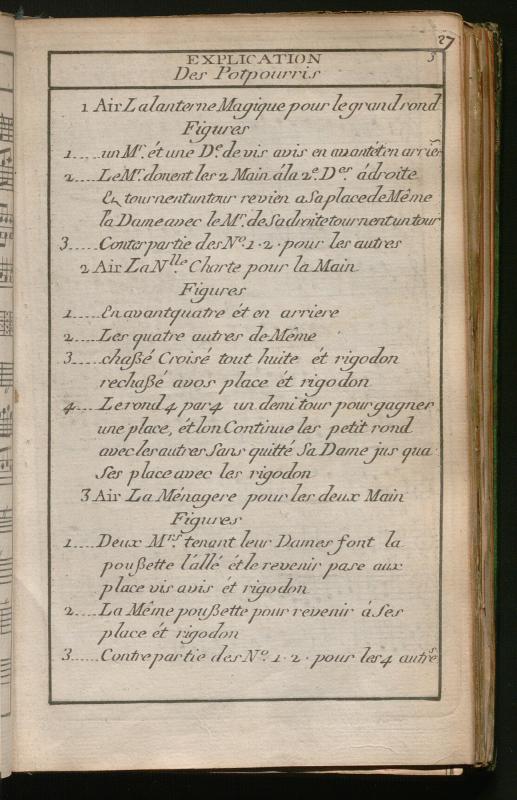 27
EXPLICATION 5
Des Potpourris
1 Air La lanterne Magique pour le grand rond
Figures
1.... un Mr. ét une De. de vis avis en avant ét en arriere
2.... Le Mr. donent les 2 Main á la 2e. Des. ádroite
Et tournent un tour revien a Sa place de Même
la Dame avec le Mr. de Sa droite tournent un tour
3.... Conter partie des No. 1 . 2 . pour les autres
2 Air La Nlle. Charte pour la Main
Figures
1.... En avant quatre ét en arriere
2.... Les quatre autres de Même
3.... chaßé Croisé tout huite ét rigodon
rechaßé avos place ét rigodon
4.... Le rond 4 par 4 un demi tour pour gagner
une place, ét lon Continue les petit rond
avec les autres Sans quitté Sa Dame jus qua
Ses place avec les rigodon
3 Air La Ménagere pour les deux Main
Figures
1.... Deux Mrs. tenant leur Dames font la
poußette l'allé ét le revenir pase aux
place vis avis ét rigodon
2.... La Même poußette pour revenir á Ses
place ét rigodon
3.... Contre partie des No. 1 . 2 . pour les 4 autres